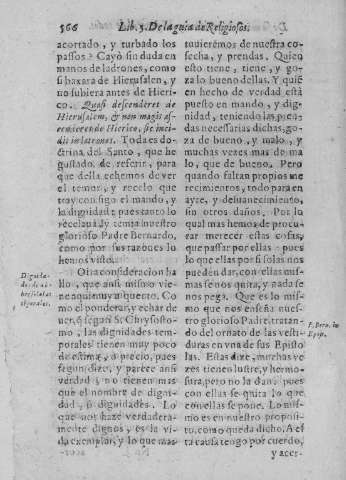 566 Lib. 5. De la guia de Religiosos.
acortado, y turbado los
passos? Cayò sin duda en
manos de ladrones, como
si baxara de Hierusalen, y
no subiera antes de Hieri-
co. Quasi descenderet de
Hierusalem, & non magis as-
cenderet de Hierico, sic inci-
dit in latrones. Toda es do-
ctrina del Santo, que he
gustado de referir, para
que della echemos de ver
el temor, y recelo que
troy consigo el mando, y
la dignidad; pues tanto lo
recelaua y temia nuestro
glorioso Padre Bernardo,
como por sus razones lo
hemos visto.
Otra consideracion ha-
llo, que ansi mismo vie-
ne aqui muy a cuento. Como
el ponderar, y echar de
ver, q̃ segun S. Chrysosto-
mo, las dignidades tem-
porales tienen muy poco
de estima, o precio, pues
segun dize, y parece ansi
verdad, no tienen mas
que el nombre de digni-
dad, o dignidades. Lo
que nos haze verdadera-
mente dignos, es la vi-
da exemplar, y lo que mas
tuuieremos de nuestra co-
secha, y prendas. Quien
esto tiene, tiene, y go-
za lo bueno dellas. Y quien
en hecho de verdad está
puesto en mando, y dig-
nidad, teniendo las pren-
das necessarias dichas, go-
za de bueno, y malo, y
muchas vezes mas de ma-
lo, que de bueno. Pero
quando faltan propios me
recimientos, todo para en
ayre, y desuanecimiento,
sin otros daños. Por lo
qual mas hemos de procu-
rar merecer estas cosas,
que passar por ellas: pues
lo que ellas por si solas nos
pueden dar, con ellas mis-
mas se nos quita, y nada se
nos pega. Que es lo mismo
que nos enseña nuestro
glorioso Padre, tratan-
do del ornato de las vesti-
duras en vna de sus Episto
las. Estas dize, muchas ve
zes tienen lustre, y hermo-
sura, pero no la dan: pues
con ellas se quita lo que
con ellas se pone. Lo mis-
mo es en nuestro proposi-
to, como queda dicho. A esta
causa tengo por cuerdo,
y acer-